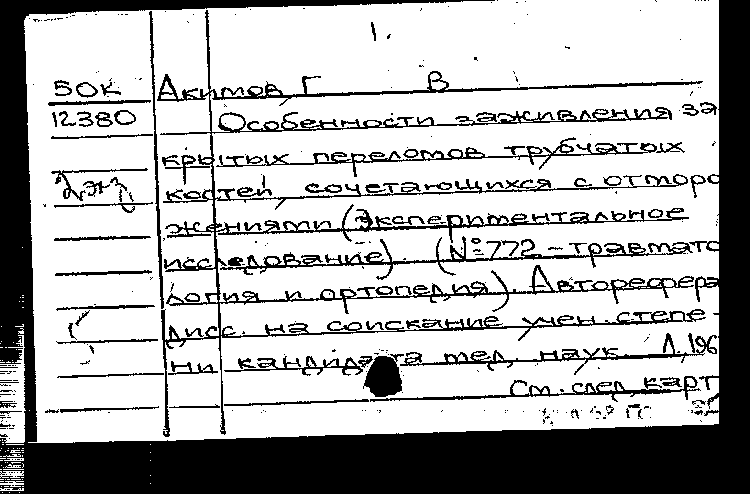 1.
50К Акимов, Г В
12380 Особенности заживления за
крытых переломов трубчатых
2 экз костей, сочетающихся с отморо
жениями (Экспериментальное
исследование). (№772-травмато
логия и ортопедия). Авторефера
дисс. на соискание учен. степе-
ни кандидата мед. наук. Л, 196
См. след. карт